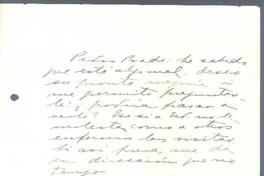 Pedro Prado: he sabido
que está algo mal. Deseo
su pronta mejoría i
me permito preguntar-
le: ¿podría pasar a
verlo? O si a Ud. no le
molesta como a otros
enfermos las visitas,
si así fuera, me dé
su dirección que no
tengo.